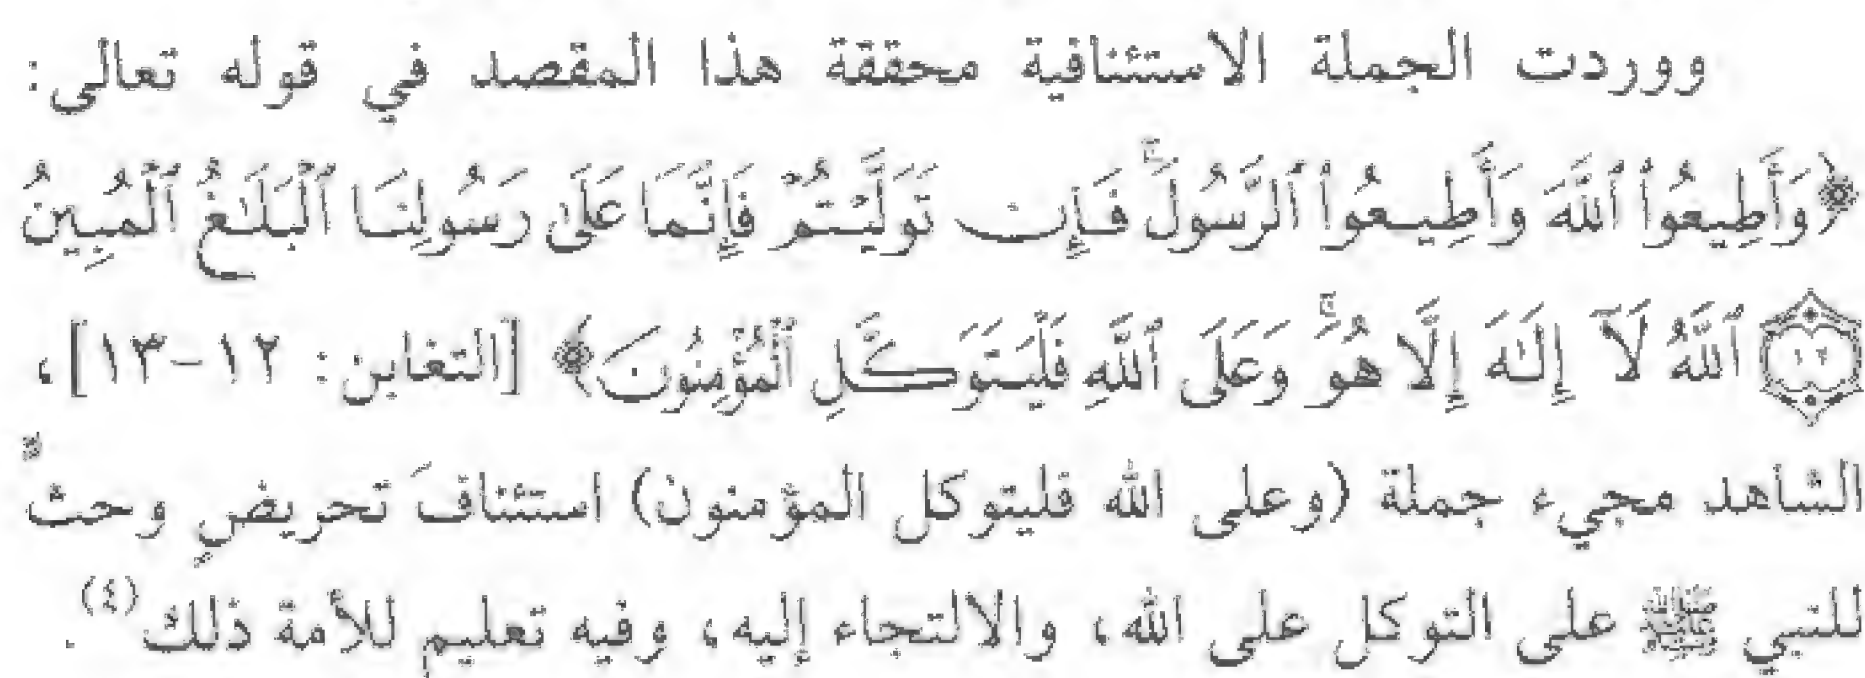 ووردت الجملة الاستئنافية محققة هذا المقصد في قوله تعالى:
﴿وَأَطِيعُوا۟ ٱللَّهَ وَأَطِيعُوا۟ ٱلرَّسُولَ ۚ فَإِن تَوَلَّيْتُمْ فَإِنَّمَا عَلَىٰ رَسُولِنَا ٱلْبَلَـٰغُ ٱلْمُبِينُ
١٢ ٱللَّهُ لَآ إِلَـٰهَ إِلَّا هُوَ ۚ وَعَلَى ٱللَّهِ فَلْيَتَوَكَّلِ ٱلْمُؤْمِنُونَ﴾ [التغابن: ١٢-١٣]،
الشاهد مجيء جملة (وعلى الله فليتوكل المؤمنون) استئنافَ تحريضٍ وحثٍّ
للنبي ﷺ على التوكل على الله، والالتجاء إليه، وفيه تعليم للأمة ذلك(٤).